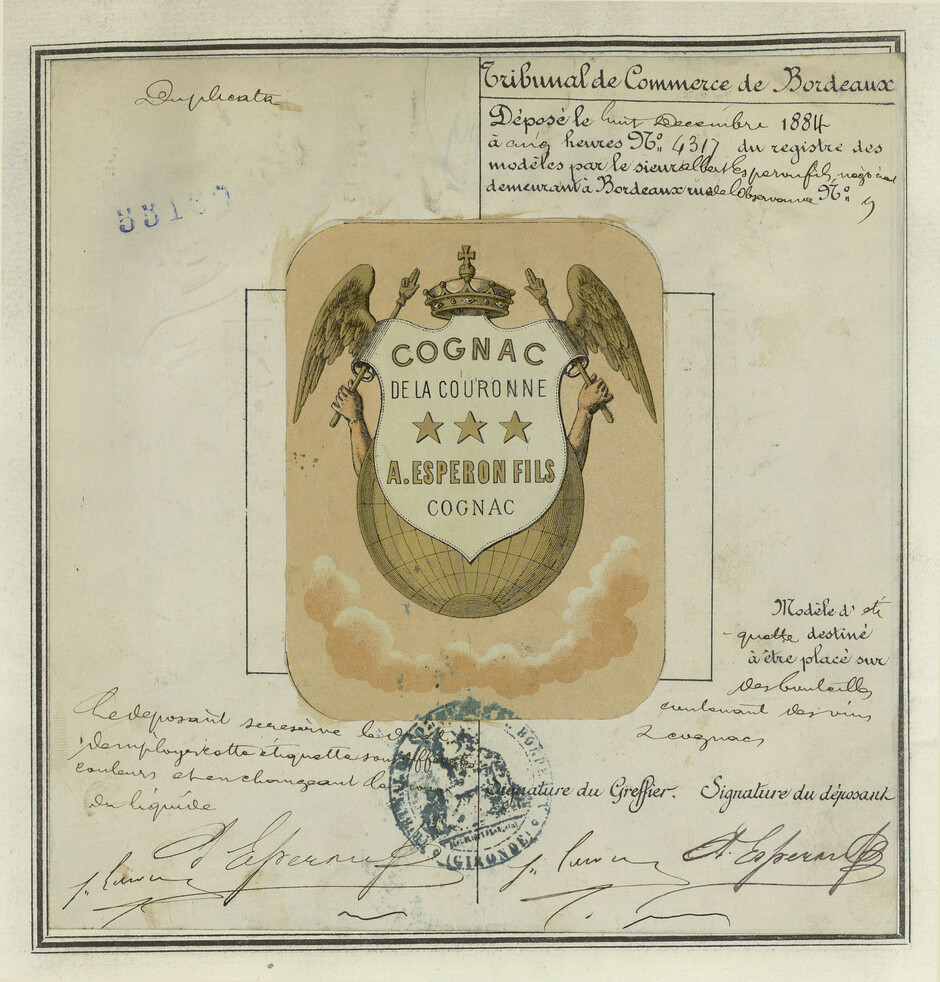 Duplicata
Tribunal de Commerce de Bordeaux
Déposé le huit Décembre 1884
à cinq heures No. 4317 du registre des
modèles par le sieur albert Esperon fils négociant
demeurant à Bordeaux rue de l'Observance No. 9
COGNAC
DE LA COURONNE
A. ESPERON FILS
COGNAC
Modèle d' éti
-quette destiné
à être placé sur
des bouteilles
contenant des vins
cognacs
Le deposant se reserve le
d'employer cette étiquette sous
couleurs et en changeant le
du liquide
Signature du Greffier. Signature du déposant
A. Esperon fils
A. Esperon fils
(GIRONDE)